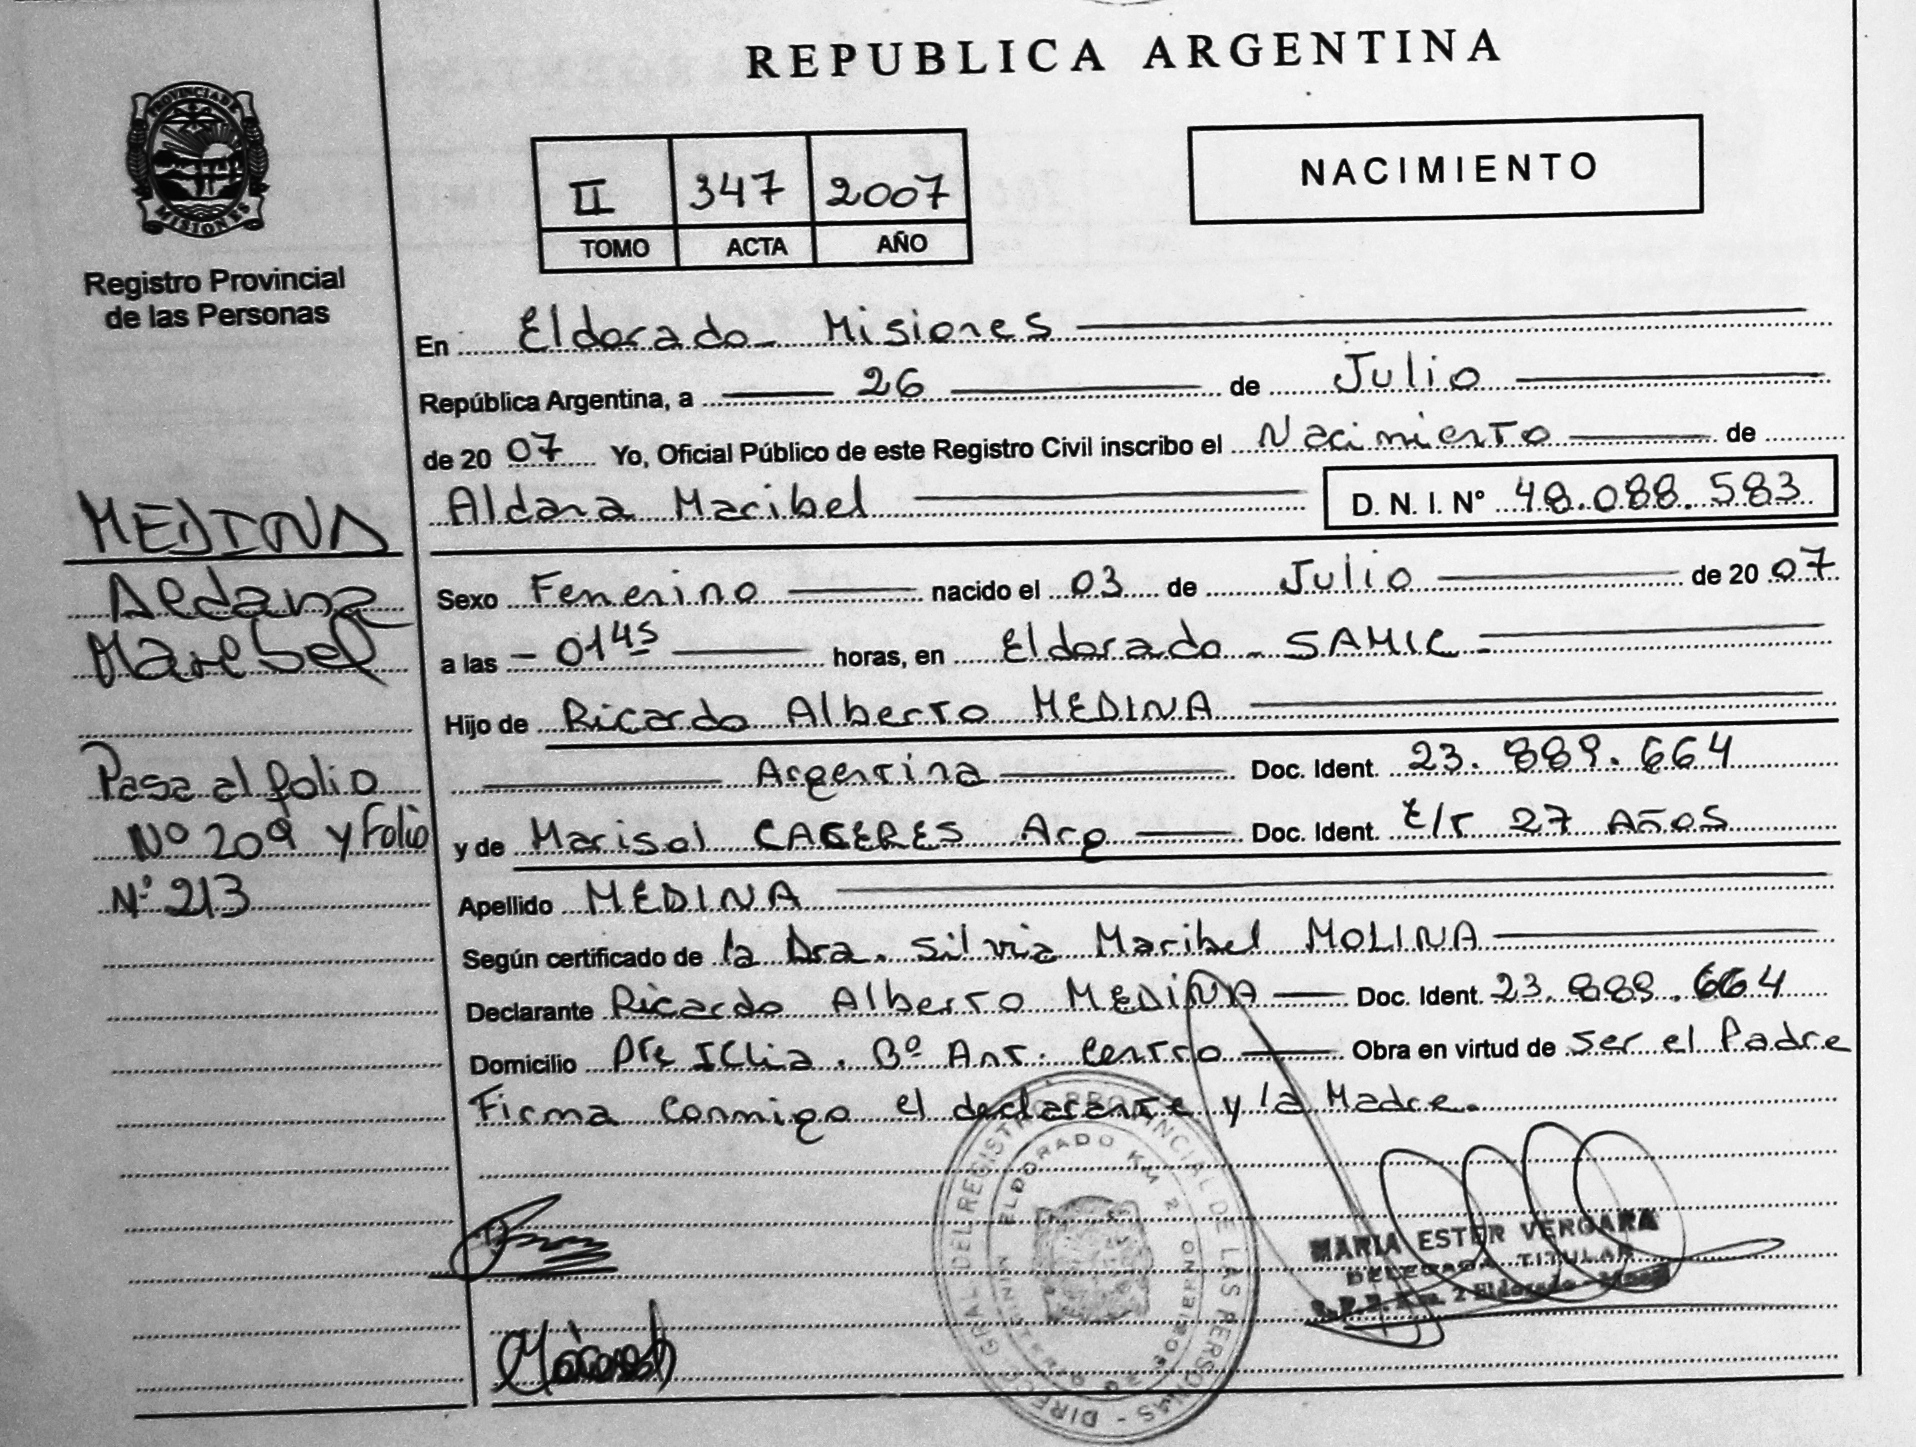 REPUBLICA ARGENTINA
PROVINCIA DE
MISIONES
Registro Provincial
de las Personas
II 347 2007
TOMO ACTA AÑO
NACIMIENTO
En Eldorado - Misiones
República Argentina, a 26 de Julio
de 20 07 Yo, Oficial Público de este Registro Civil inscribo el Nacimiento de
Aldana Maribel D. N. I. Nº 48.088.583
Sexo Femenino nacido el 03 de Julio de 20 07
a las - 01 45 horas, en Eldorado - SAMIC -
Hijo de Ricardo Alberto MEDINA
Argentina Doc. Ident. 23.889.664
y de Marisol CACERES Arg Doc. Ident. E/t 27 Años
Apellido MEDINA
Según certificado de la Dra. Silvia Maribel MOLINA
Declarante Ricardo Alberto MEDINA Doc. Ident. 23.889.664
Domicilio Pte Illia. Bº Ant. Centro Obra en virtud de ser el Padre
Firma conmigo el declarante y la Madre.
MEDINA
Aldana
Maribel
Pasa al folio
Nº 209 y Folio
Nº 213
DIRECC. GRAL. DEL REGISTRO PROVINCIAL DE LAS PERSONAS
MINISTERIO DE GOBIERNO
ELDORADO KM 2
MARIA ESTER VERGARA
DELEGADA TITULAR
R.P.P. Km. 2 Eldorado - Mnes